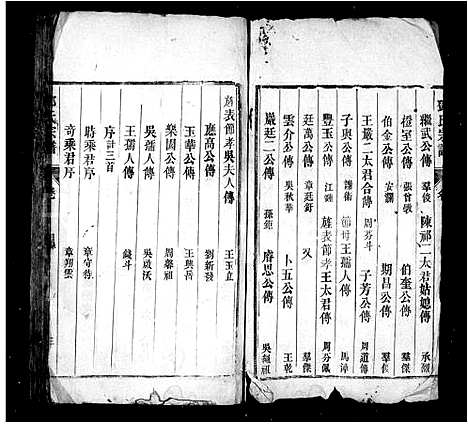 繼武公傳 羣俊 陳祁二太君姑媳傳 承灝
穆室公傳 張曾敭 伯奎公傳 羣傑
伯金公傳 安瀾 期昌公傳 羣俟
王嚴二太君合傳 周芬斗 子芳公傳 周道傳
子與公傳 謙衛 節母王孺人傳 馬漳
豐玉公傳 江 旌表節孝王太君傳 周芬佩
廷萬公傳 章廷釪 又 羣傑
雲介公傳 吳秋華 卜五公傳 王乾
嚴廷二公傳 孫鉅 睿思公傳 吳祖
旌表節孝吳夫人傳 王玉
廳高公傳 劉新發
玉華公傳 王興岳
樂園公傳 周馨祖
吳孺人傳 吳成沃
王孺人傳 錢斗
序計三首
時乘君序 章守待
奇乘君序 章翔雲